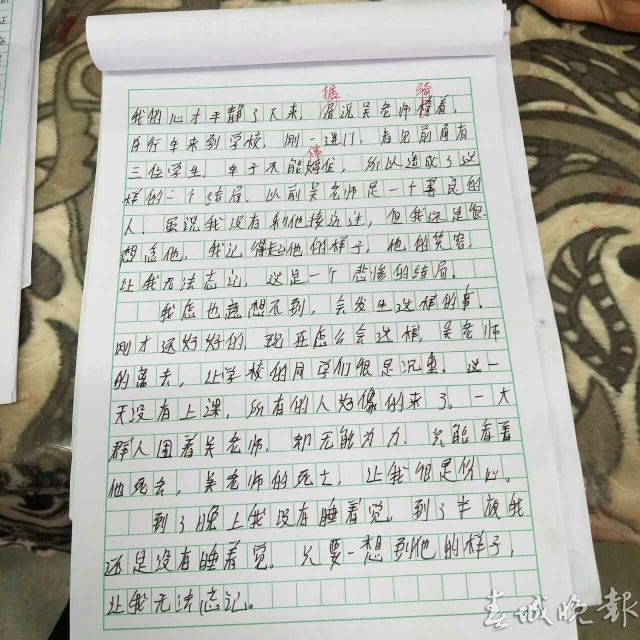 据 骑
我的心才平静了下来，居说吴老师椅着，
自行车来到学校，刚一进门，看见前面有
停
三位学生，车子不能婷住，所以造成了这
样的一个结局。以前吴老师是一个善良的
人，虽说我没有和他接近过，但我还是很
想念他，我记得起他的样子，他的笑容，
让我无法忘记，这是一个悲惨的结局。
我怎也想不到，会发生这样的事。
刚才还好好的，现在怎么会这样，吴老师
的离去，让学校的同学们很是沉重。这一
天没有上课，所有的人好像的来了。一大
群人围着吴老师，却无能为力，只能看着
他死去，吴老师的死亡，让我很是伤心。
到了晚上我没有睡着觉，到了半夜我
还是没有睡着觉。只要一想到他的样子，
让我无法忘记。
春城晚报